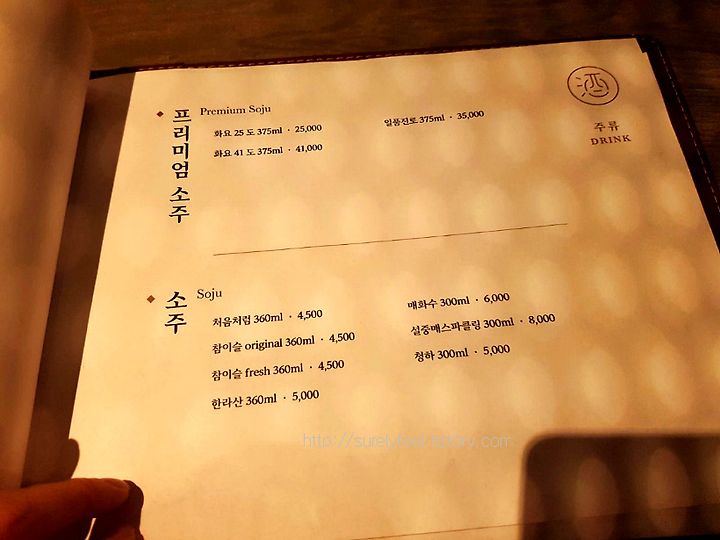 酒
주류
DRINK
프리미엄 소주
Premium Soju
화요 25 도 375ml · 25,000
화요 41 도 375ml · 41,000
일품진로 375ml · 35,000
소주
Soju
처음처럼 360ml · 4,500
참이슬 original 360ml · 4,500
참이슬 fresh 360ml · 4,500
한라산 360ml · 5,000
매화수 300ml · 6,000
설중매스파클링 300ml · 8,000
청하 300ml · 5,000